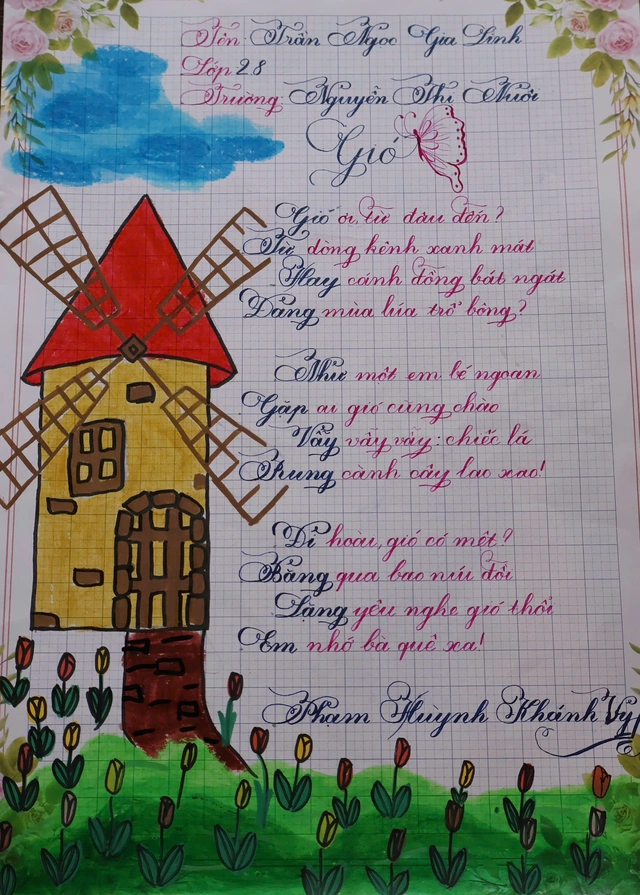 Tên Trần Ngọc Gia Linh
Lớp 28
Trường: Nguyễn Thị Nuôi
Gió
Gió ơi, từ đâu đến?
Từ dòng kênh xanh mát
Hay cánh đồng bát ngát
Đang mùa lúa trổ bông?
Như một em bé ngoan
Gặp ai gió cũng chào
Vẫy vẫy vẫy: chiếc lá
Rung cành cây lao xao!
Đi hoài, gió có mệt?
Băng qua bao núi đồi
Lặng yêu nghe gió thổi
Em nhớ bà quê xa!
Phạm Huỳnh Khánh Vy